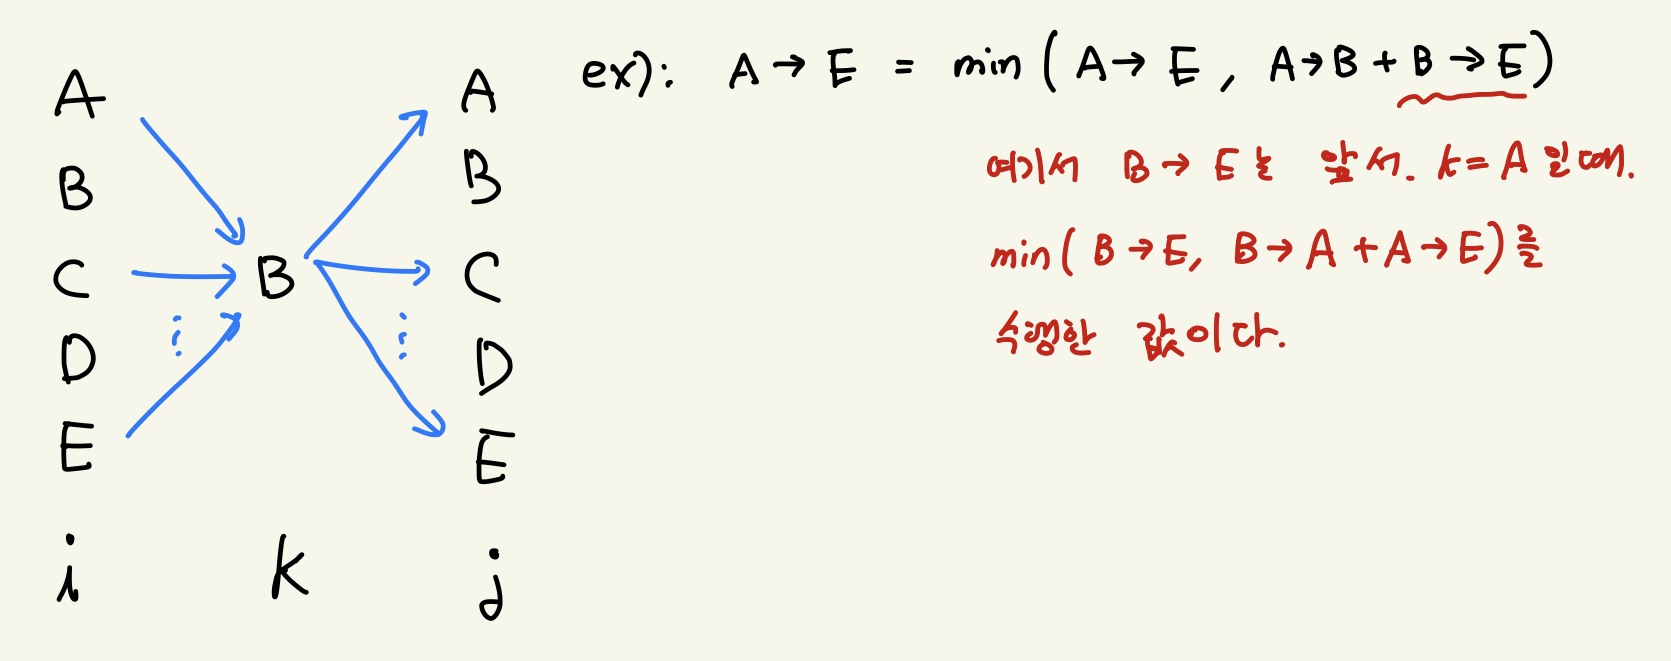 A
B
C
D
E
i
B
k
A
B
C
D
E
j
ex): A → E = min ( A → E , A → B + B → E )
여기서 B → E는 앞서. k = A 일때.
min( B → E, B → A + A → E)를
수행한 값이다.